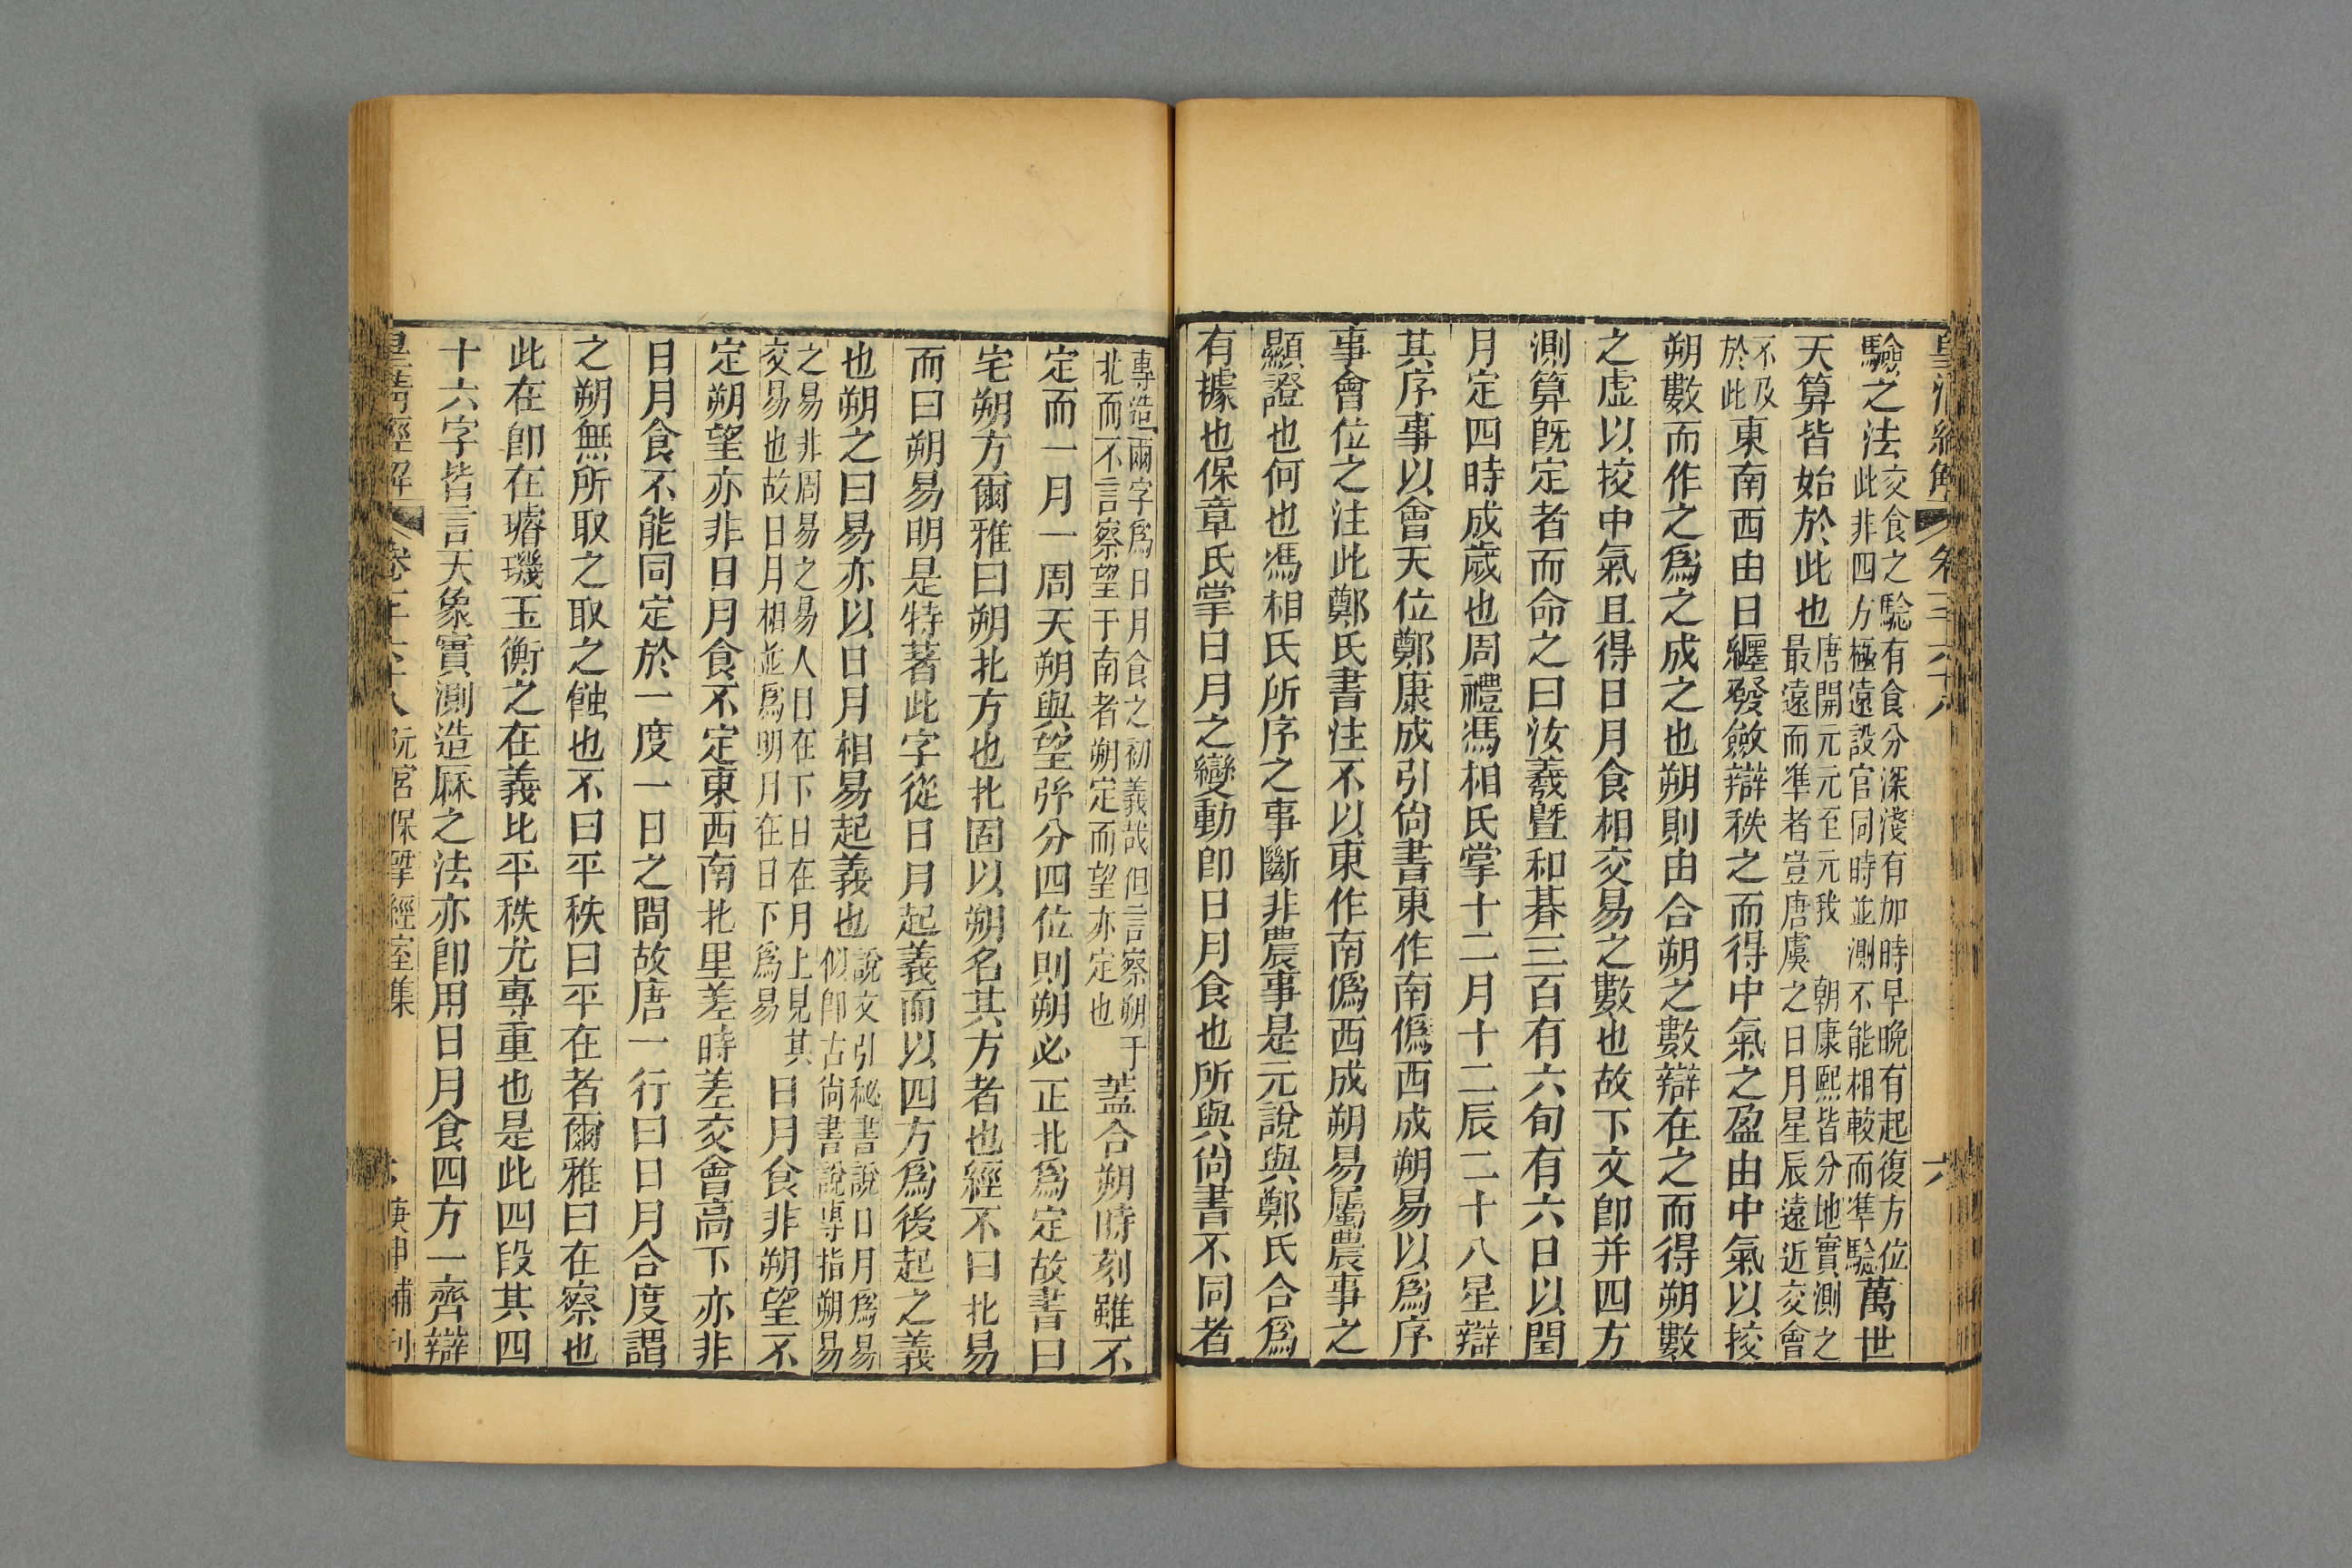 皇清經解 卷一千六十八 六
驗之法交食之驗有食分深淺有加時早晚有起復方位此非四方極遠設官同時並測不能相較而準驗萬世
天算皆始於此也唐開元元至元我朝康熙皆分地實測之最遠而準者豈唐虞之日月星辰遠近交會
不及於此東南西由日纏發斂辯秩之而得中氣之盈由中氣以挍
朔數而作之爲之成之也朔則由合朔之數辯在之而得朔數
之虛以挍中氣且得日月食相交易之數也故下文卽并四方
測算旣定者而命之曰汝羲曁和朞三百有六旬有六日以閏
月定四時成歲也周禮馮相氏掌十二月十二辰二十八星辯
其序事以會天位鄭康成引尙書東作南僞西成朔易以爲序
事會位之注此鄭氏書注不以東作南僞西成朔易屬農事之
顯證也何也馮相氏所序之事斷非農事是元說與鄭氏合爲
有據也保章氏掌日月之變動卽日月食也所與尙書不同者
專造爾字爲日月食之初義哉但言察朔于北而不言察望于南者朔定而望亦定也蓋合朔時刻雖不
定而一月一周天朔與望㸚分四位則朔必正北爲定故書曰
宅朔方爾雅曰朔北方也北固以朔名其方者也經不曰北易
而曰朔易明是特著此字從日月起義而以四方爲後起之義
也朔之曰易亦以日月相易起義也說文引秘書說日月爲易似卽古尙書說專指朔易
之易非周易之易人日在下日在月上見其交易也故日月相並爲明月在日下爲易日月食非朔望不
定朔望亦非日月食不定東西南北里差時差交會高下亦非
日月食不能同定於一度一日之間故唐一行曰日月合度謂
之朔無所取之取之蝕也不曰平秩曰平在者爾雅曰在察也
此在卽在璿璣玉衡之在義比平秩尤專重也是此四段其四
十六字皆言天象實測造厤之法亦卽用日月食四方一齊辯
皇淸經解 卷一千六十八 阮宮保揅經室集 六 庚申補刊